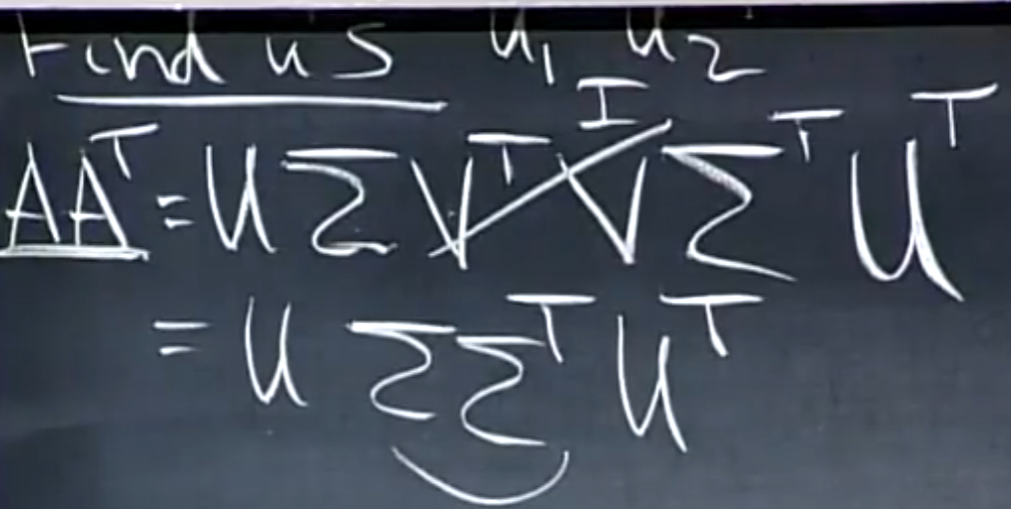 Find u's u₁ u₂
I
AAᵀ = U Σ Vᵀ V Σᵀ Uᵀ
= U Σ Σᵀ Uᵀ